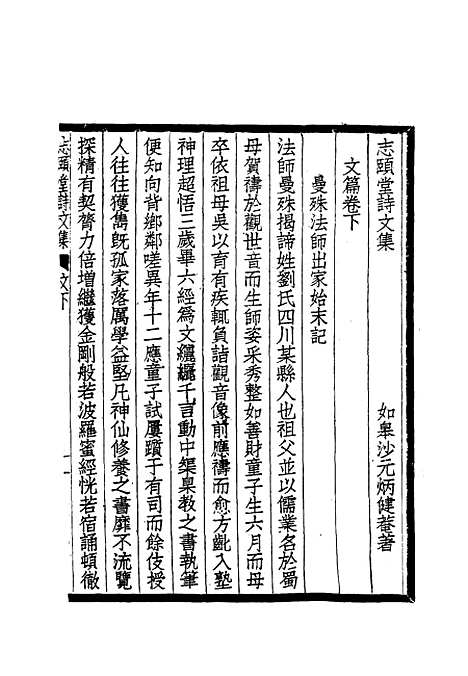 志頤堂詩文集
如臯沙元炳健菴著
文篇卷下
曼殊法師出家始末記
法師曼殊揭諦姓劉氏四川某縣人也祖父並以儒業名於蜀
母賀禱於觀世音而生師姿采秀整如善財童子生六月而母
卒依祖母吳以育有疾輒負詣觀音像前應禱而愈方齔入塾
神理超悟三歲畢六經爲文纚纚千言動中榘臬教之書執筆
便知向背鄉鄰嗟異年十二應童子試屢躓于有司而餘伎授
人往往獲雋旣孤家落厲學益堅凡神仙修養之書靡不流覽
探精有契膂力倍增繼獲金剛般若波羅蜜經恍若宿誦頓徹
志頤堂詩文集
文下
一